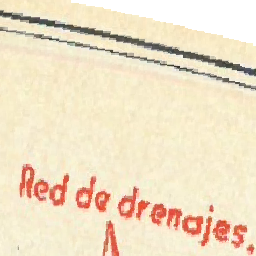 Red de drenajes.